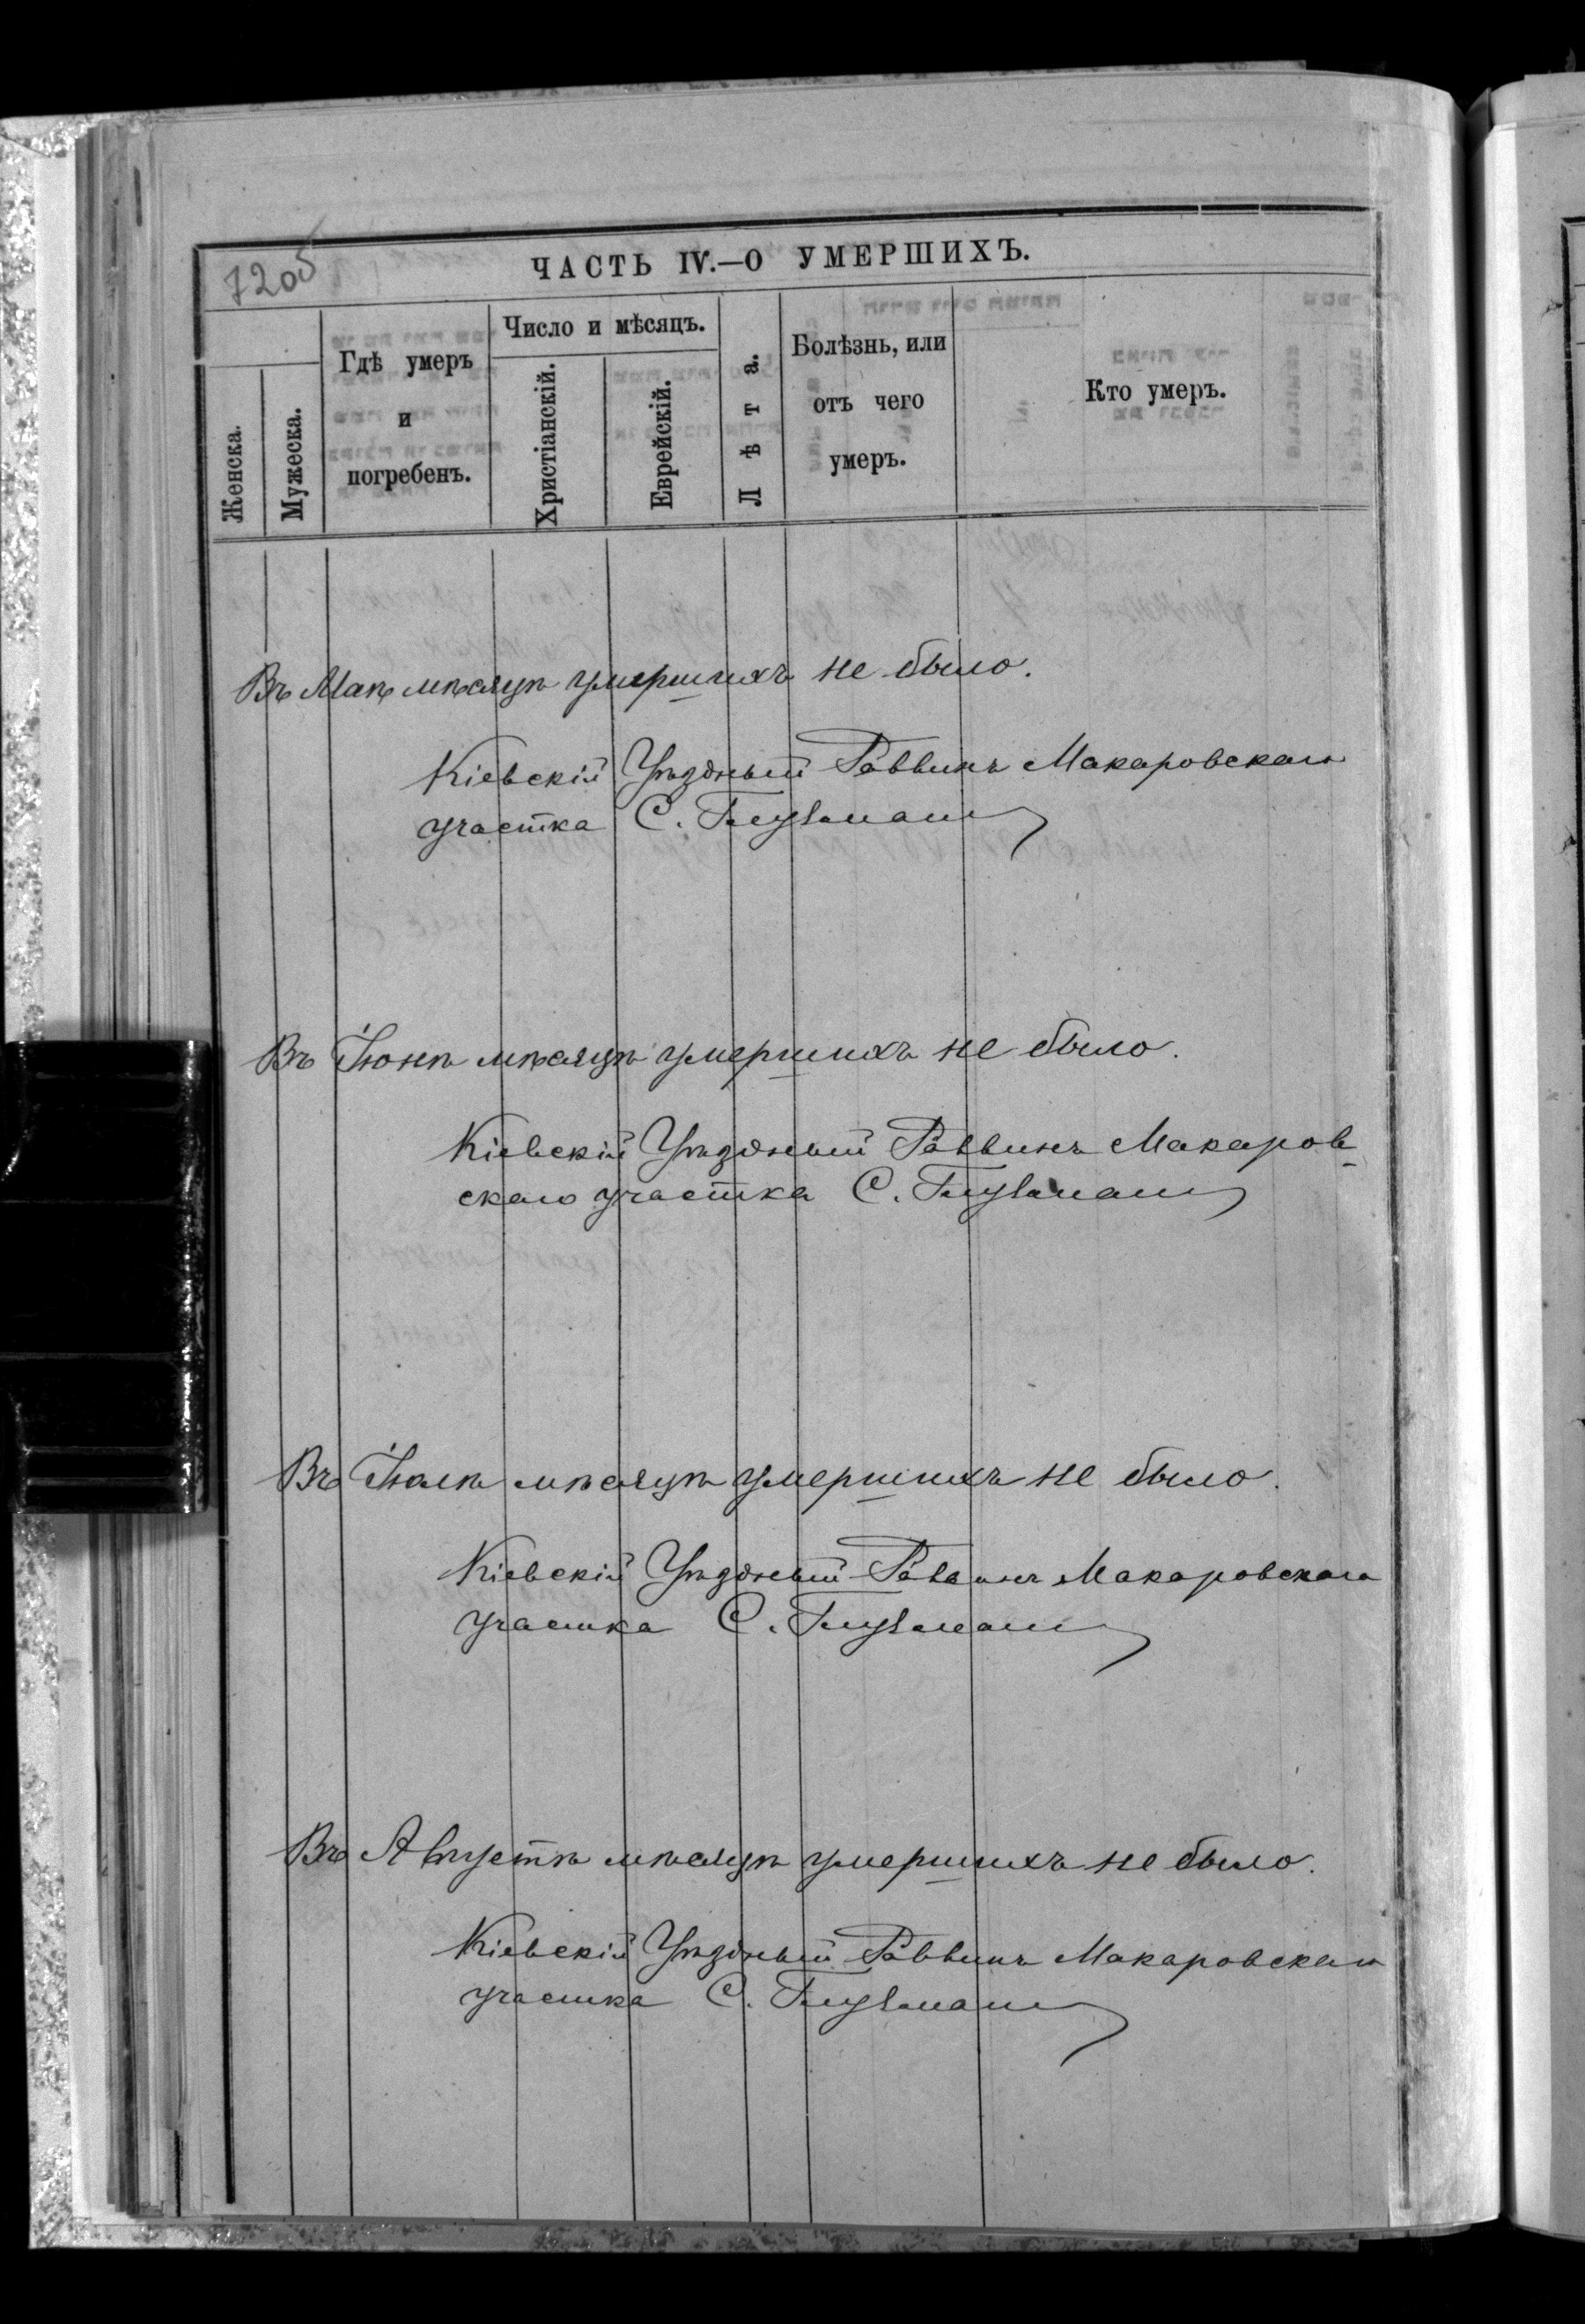 720б
ЧАСТЬ IV.—О УМЕРШИХЪ.
Женска.
Мужеска.
Гдѣ умеръ
и
погребенъ.
Число и мѣсяцъ.
Христіанскій.
Еврейскій.
Лѣта.
Болѣзнь, или
отъ чего
умеръ.
Кто умеръ.
Въ Маѣ мѣсяцѣ умершихъ не было.
Кіевскій Уѣздный Раввинъ Макаровскаго
участка С.
Въ Іюнѣ мѣсяцѣ умершихъ не было.
Кіевскій Уѣздный Раввинъ Макаров-
скаго участка С.
Въ Іюлѣ мѣсяцѣ умершихъ не было.
Кіевскій Уѣздный Раввинъ Макаровскаго
участка С.
Въ Августѣ мѣсяцѣ умершихъ не было.
Кіевскій Уѣздный Раввинъ Макаровскаго
участка С.